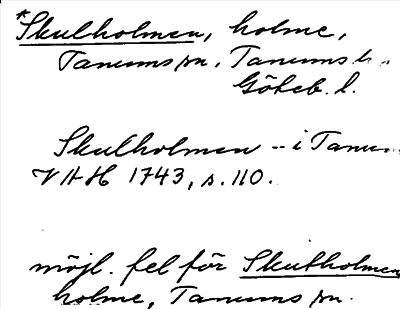 *Skulholmen, holme,
Tanums sn, Tanums h.
Göteb. l.
Skulholmen -- i Tanum
VAH 1743, s. 110.
möjl. fel för Skutholmen
holme, Tanums sn.